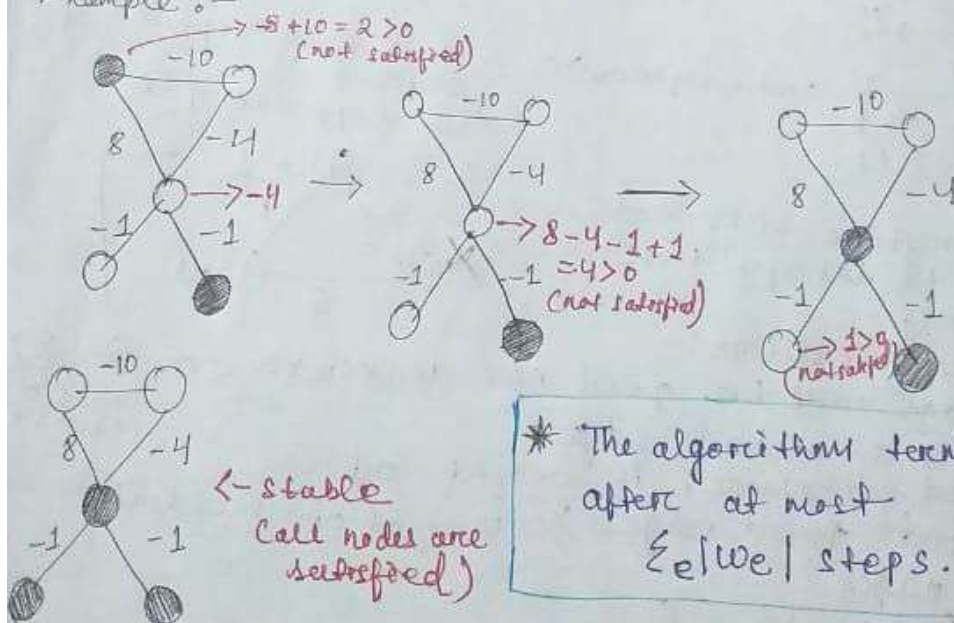 Example :-
-8 +10 = 2 >0
(not satisfied)
-10
8
-4
-4
-1
-1
-10
8
-4
8-4-1+1
=4>0
(not satisfied)
-1
-1
-10
8
-4
-1
-1
1>0
(not satisfied)
-10
8
-4
-1
-1
<- stable
(all nodes are
satisfied)
* The algorithms
after at most
Σe|We| steps.